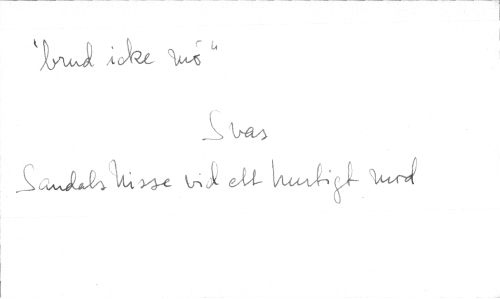 "brud icke mö"
Svas
Sandals Nisse vid ett hurtigt mod